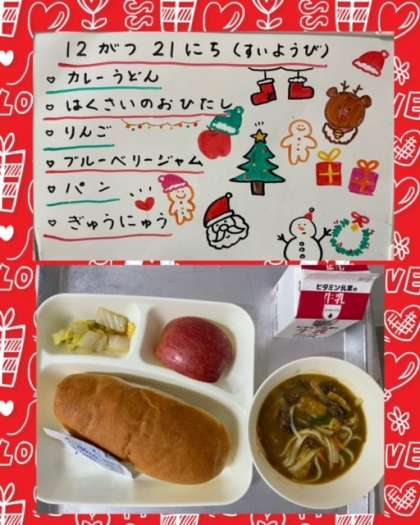 12がつ 21にち(すいようび)
♡ カレーうどん
♡ はくさいのおひたし
♡ りんご
♡ ブルーベリージャム
♡ パン
♡ ぎゅうにゅう
ビタミン乳業の
牛乳
LOVE